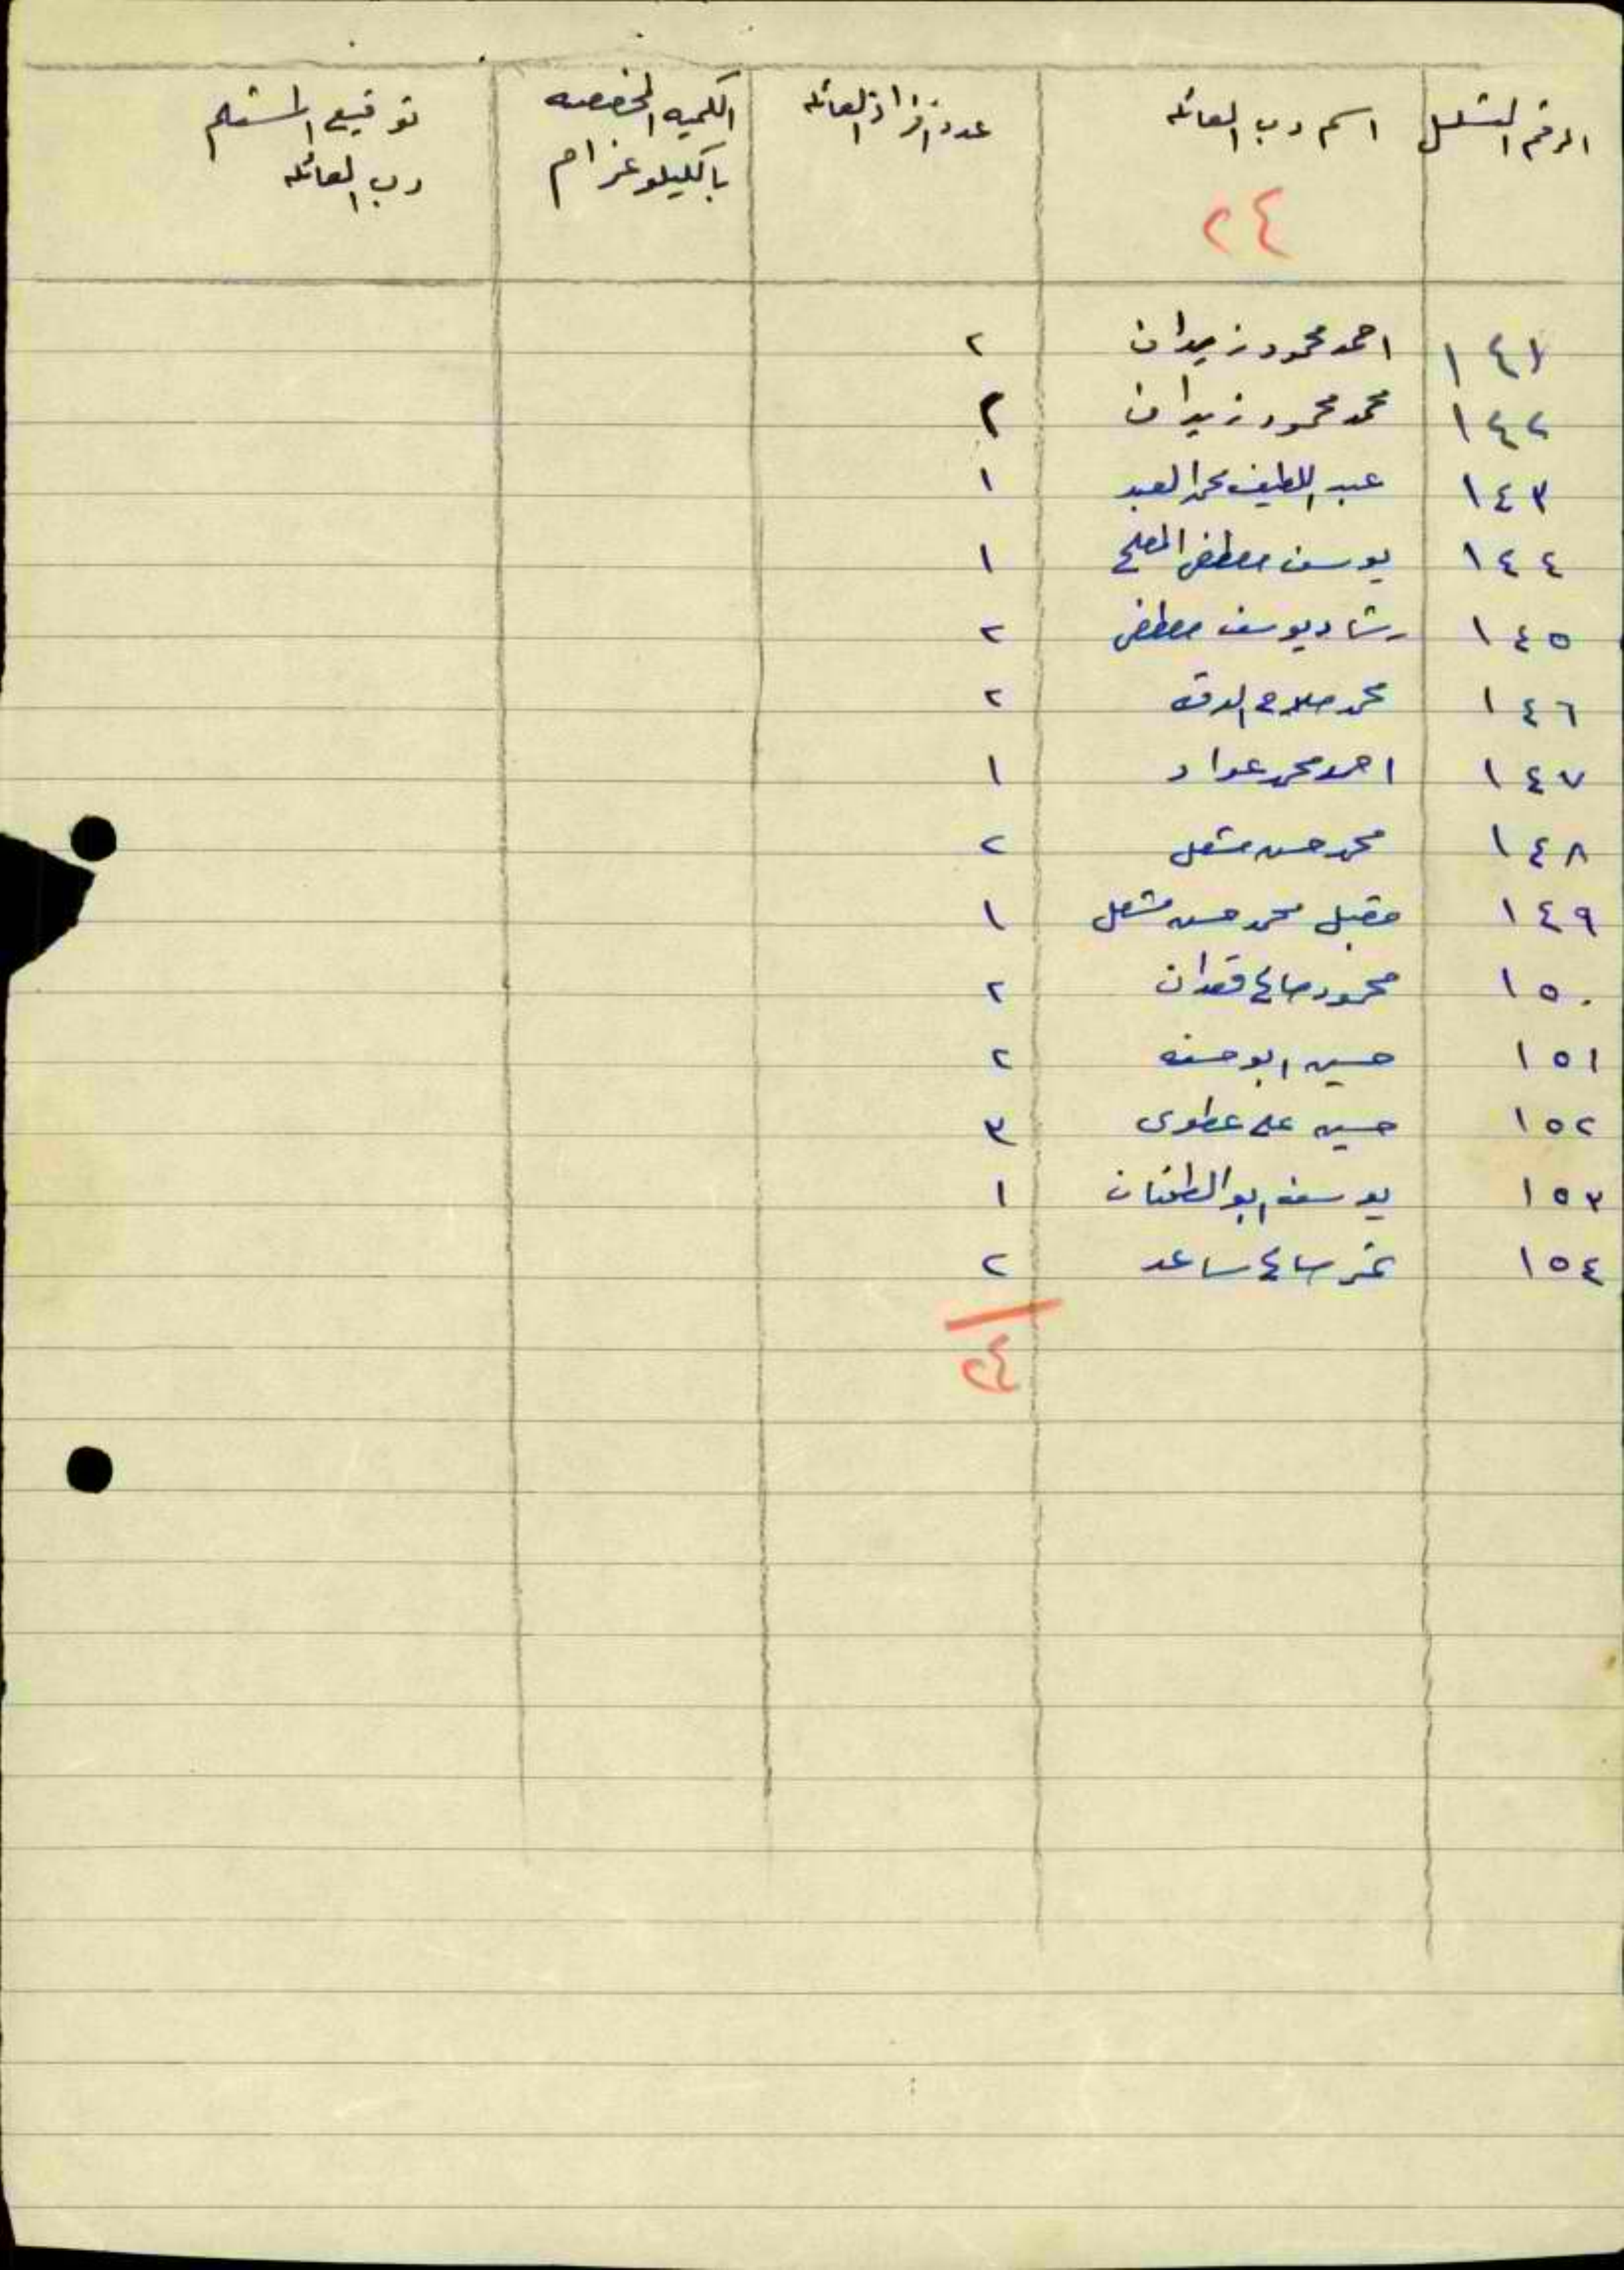 الرقم المتسلسل اسم رب العائله عدد افراد العائله الكميه المخصصه توقيع المستلم
بالكيلو غرام رب العائله
٢٤
١٤١ احمد محمود زيدان ٢
١٤٢ محمد محمود زيدان ٢
١٤٣ عبد اللطيف محمد العبد ١
١٤٤ يوسف مصطفى المفلح ١
١٤٥ رشاد يوسف مصطفى ٢
١٤٦ محمد صلاح الدقه ٢
١٤٧ احمد محمد عواد ١
١٤٨ محمد حسن مشعل ٢
١٤٩ مقبل محمد حسن مشعل ١
١٥٠ محمود صالح قعدان ٢
١٥١ حسين ابو حسنه ٢
١٥٢ حسين علي عطوى ٣
١٥٣ يوسف ابو ١
١٥٤ نمر صالح ساعد ٢
٢٤